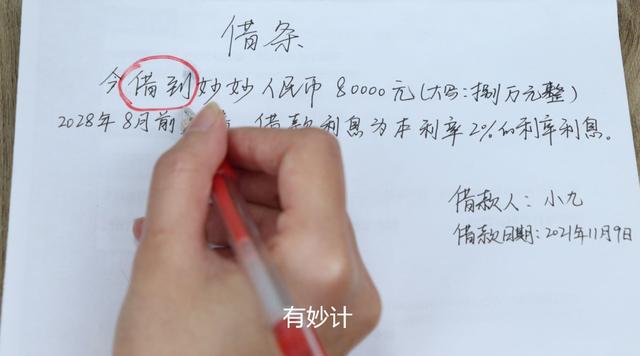 借条
今借到妙妙人民币80000元(大写:捌万元整)
2028年8月前 清,借款利息为本利率2%的利率利息。
借款人:小九
借款日期:2021年11月9日
有妙计